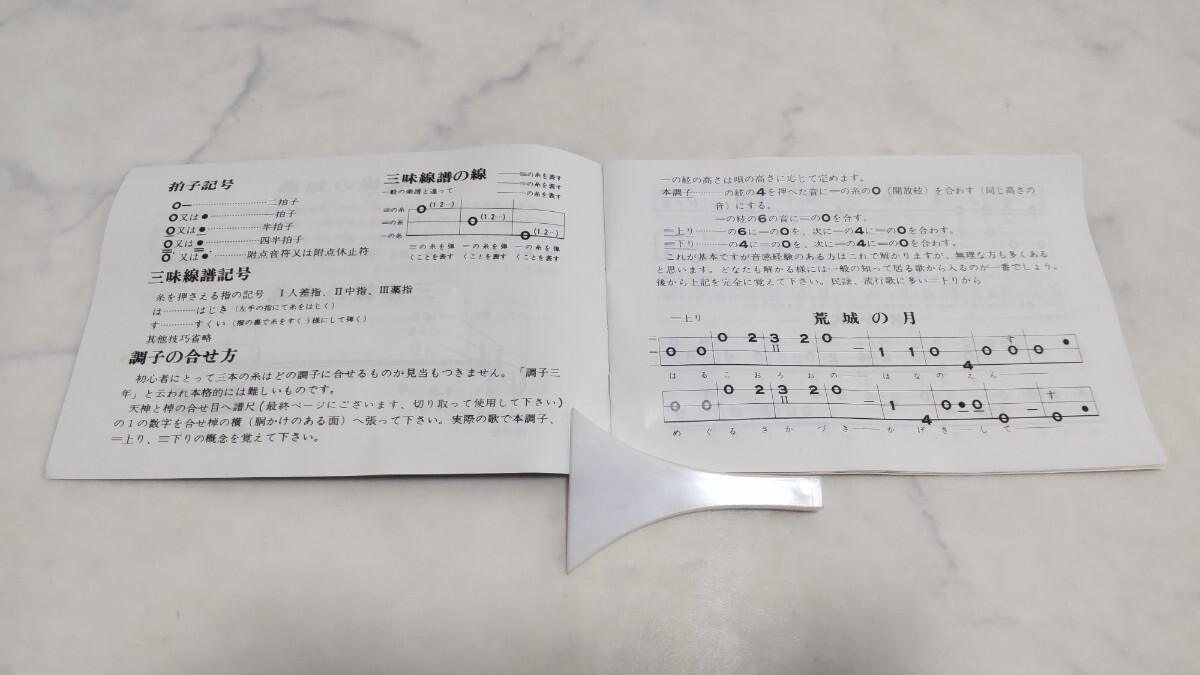 拍子記号
O—……………………二拍子
O又は●……………………一拍子
O又は●………………半拍子
O又は●………………四半拍子
O又は●・…………附点音符又は附点休止符
三味線譜の線
三の糸を表す
二の糸を表す
一の糸を表す
一般の楽譜と違って
三の糸
二の糸
一の糸
O (1.2…)
O (1.2…)
O (1.2…)
三の糸を弾くことを表す
二の糸を弾くことを表す
一の糸を弾くことを表す
三味線譜記号
糸を押さえる指の記号 Ⅰ人差指、Ⅱ中指、Ⅲ薬指
は…………はじき(左手の指にて糸をはじく)
す…………すくい(撥の裏で糸をすくう様にして弾く)
其他技巧省略
調子の合せ方
初心者にとって三本の糸はどの調子に合せるものか見当もつきません。「調子三
年」と云われ本格的には難しいものです。
天神と棹の合せ目へ譜尺(最終ページにございます、切り取って使用して下さい)
の1の数字を合せ棹の横(胴かけのある面)へ張って下さい。実際の歌で本調子、
二上り、三下りの概念を覚えて下さい。
一の絃の高さは唄の高さに応じて定めます。
本調子……一の絃の4を押へた音に二の糸のO(開放絃)を合わす(同じ高さの
音)にする。
二の絃の6の音に三のOを合す。
二上り……一の6に二のOを、次に二の4に三のOを合わす。
三下り……一の4に二のOを、次に二の4に三のOを合わす。
これが基本ですが音感経験のある方はこれで解かりますが、無理な方も多くある
と思います。どなたも解かる様には一般の知って居る歌から入るのが一番でしょう。
後から上記を完全に覚えて下さい。民謡、流行歌に多い二上りから
二上り
荒城の月
O O O 2 3 2 O — 1 1 O 4 O O O ●
Ⅱ
す
はるこおろおの——はなのえん——
O O O 2 3 2 O — 1 4 O ● O O — O ●
Ⅱ
す
めぐるさかづき——かげさして——